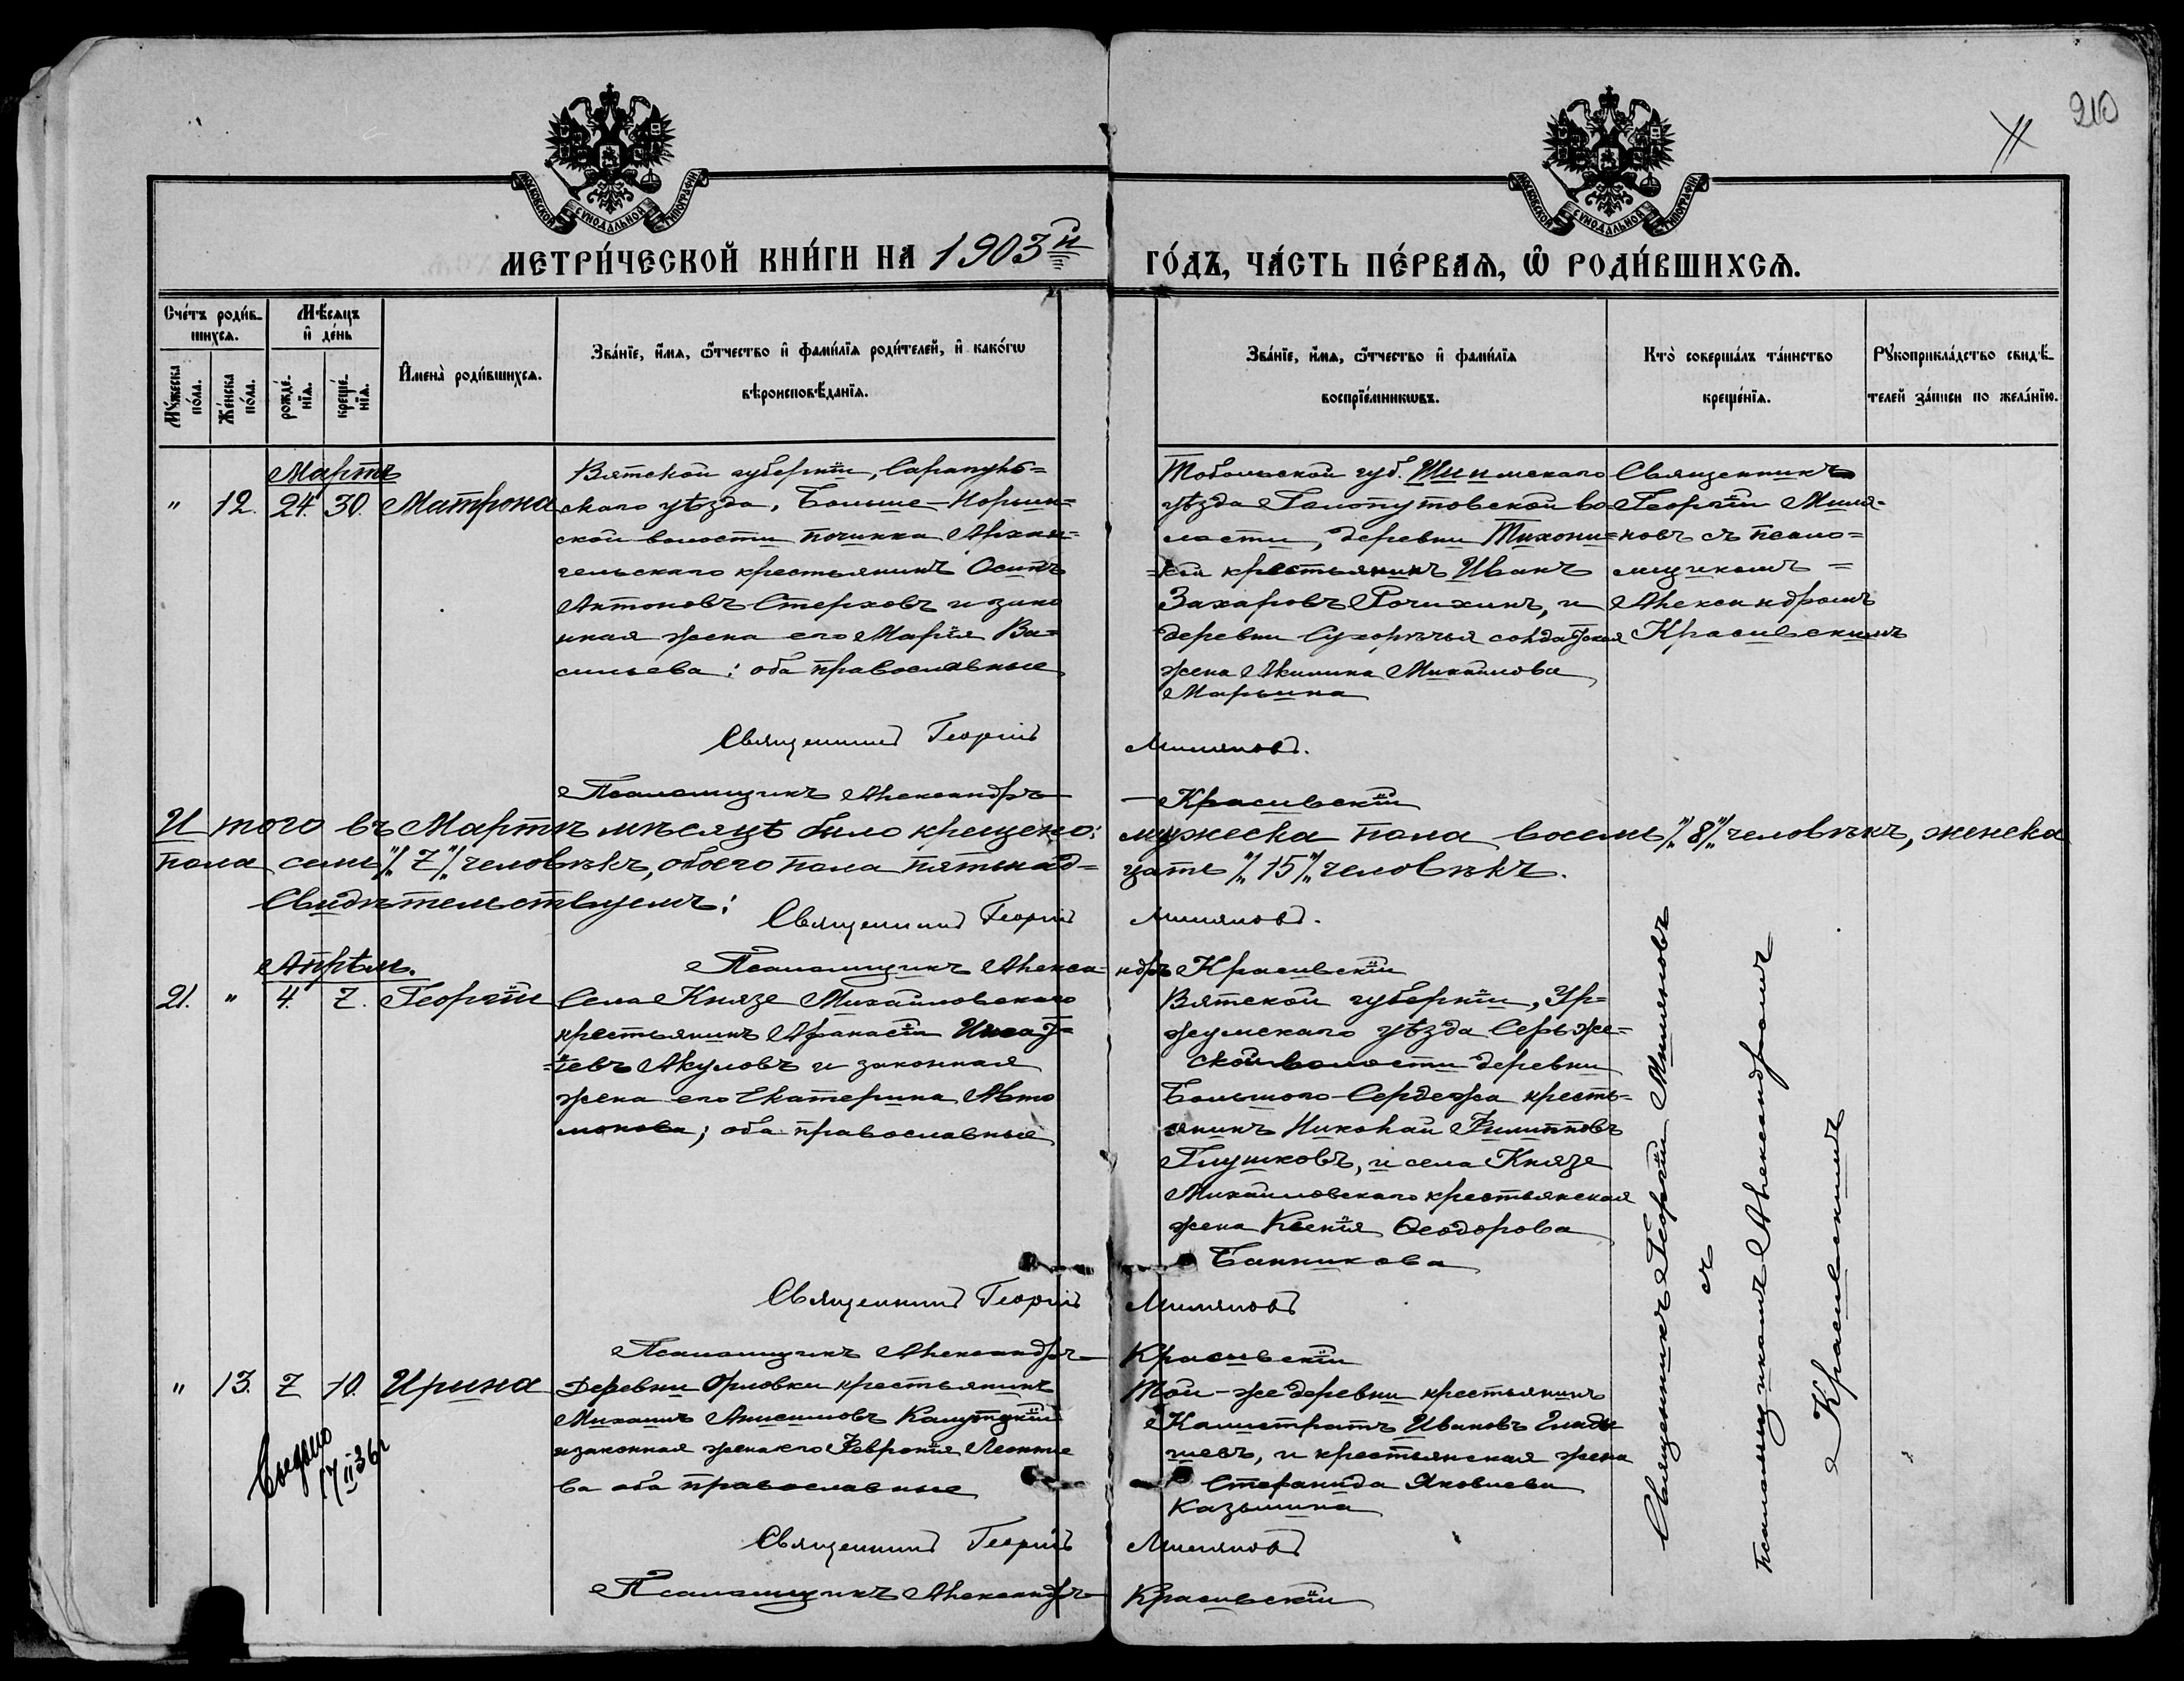 210
МОСКОВСКОЙ СѴНОДАЛЬНОЙ ТИПОГРАФІИ
МОСКОВСКОЙ СѴНОДАЛЬНОЙ ТИПОГРАФІИ
МЕТРИ́ЧЕСКОЙ КНИ́ГИ НА 1903й
ГО́ДЪ, ЧА́СТЬ ПЕ́РВАѦ, Ѡ҆ РОДИ́ВШИХСѦ.
Сче́тъ роди́в-
шихсѧ.
Мꙋ́жеска по́ла.
Же́нска по́ла.
Мѣ́сѧцъ
и҆ де́нь
рожде́-
нїѧ.
креще́-
нїѧ.
И҆мена̀ роди́вшихсѧ.
Зва́нїе, и҆́мѧ, ѻ҆́тчество и҆ фами́лїѧ роди́телей, и҆ како́гѡ
вѣроисповѣ́данїѧ.
Зва́нїе, и҆́мѧ, ѻ҆́тчество и҆ фами́лїѧ
воспрїе́мникѡвъ.
Кто̀ соверша́лъ та́инство
креще́нїѧ.
Рꙋкоприкла́дство свидѣ́-
телей за́писи по жела́нїю.
Мартъ
" 12. 24. 30. Матрона
Вятской губерніи, Сарапуль=
скаго уѣзда, Больше-Норьин=
ской волости починка Архан=
гельскаго крестьянинъ Осипъ
Антоновъ Стерховъ и зако
нная жена его Марія Ва=
сильева; оба православные
Тобольской губ. Ишимскаго
уѣзда Голопутовской во
лости, деревни Тихони=
=хи крестьянинъ Иванъ
Захаровъ Рочихинъ, и
деревни Сухорѣчья солдатская
жена Акилина Михайлова
Марьина
Священникъ
Георгій Миля-
новъ съ псало=
мщикомъ =
Александромъ
Красивскимъ
Священникъ Георгій Миляновъ.
Псаломщикъ Александръ Красивскій
И того въ Мартѣ мѣсяцѣ было крещено: мужеска пола восемь "/. 8 "/. человѣкъ, женска
пола семь "/. 7 "/. человѣкъ, обоего пола пятьнад= цать "/. 15 "/. человѣкъ.
Свидѣтельствуемъ:
Священникъ Георгій Миляновъ.
Псаломщикъ Алекса- ндръ Красивскій
Апрѣль.
21. " 4. 7. Георгій
Села Князе Михайловскаго
крестьянинъ Афанасій Игнат=
=іевъ Акуловъ и законная
жена его Екатерина Авто
монова; оба православные
Вятской губерніи, Ур=
жумскаго уѣзда Сердеже=
ской волости деревни
Большого-Сердежа кресть=
янинъ Николай Филипповъ
Глушковъ, и села Князе
Михайловскаго крестьянская
жена Ксенія Ѳеодорова
Банникова
Священникъ Георгій Миляновъ
Псаломщикъ Александръ Красивскій
" 13. 7 10. Ирина
Деревни Орловки крестьянинъ
Михаилъ Анисимовъ Калуцкій
и законная жена его Февронія Леонтье
ва оба православные
Той-же деревни крестьянинъ
Калистратъ Ивановъ Глады
шевъ, и крестьянская жена
Стефанида Яковлева
Казьмина
17 II 36 г
Священникъ Георгій Миляновъ
Псаломщикъ Александръ Красивскій
Священникъ Георгій Миляновъ
съ
псаломщикомъ Александромъ
Красивскимъ